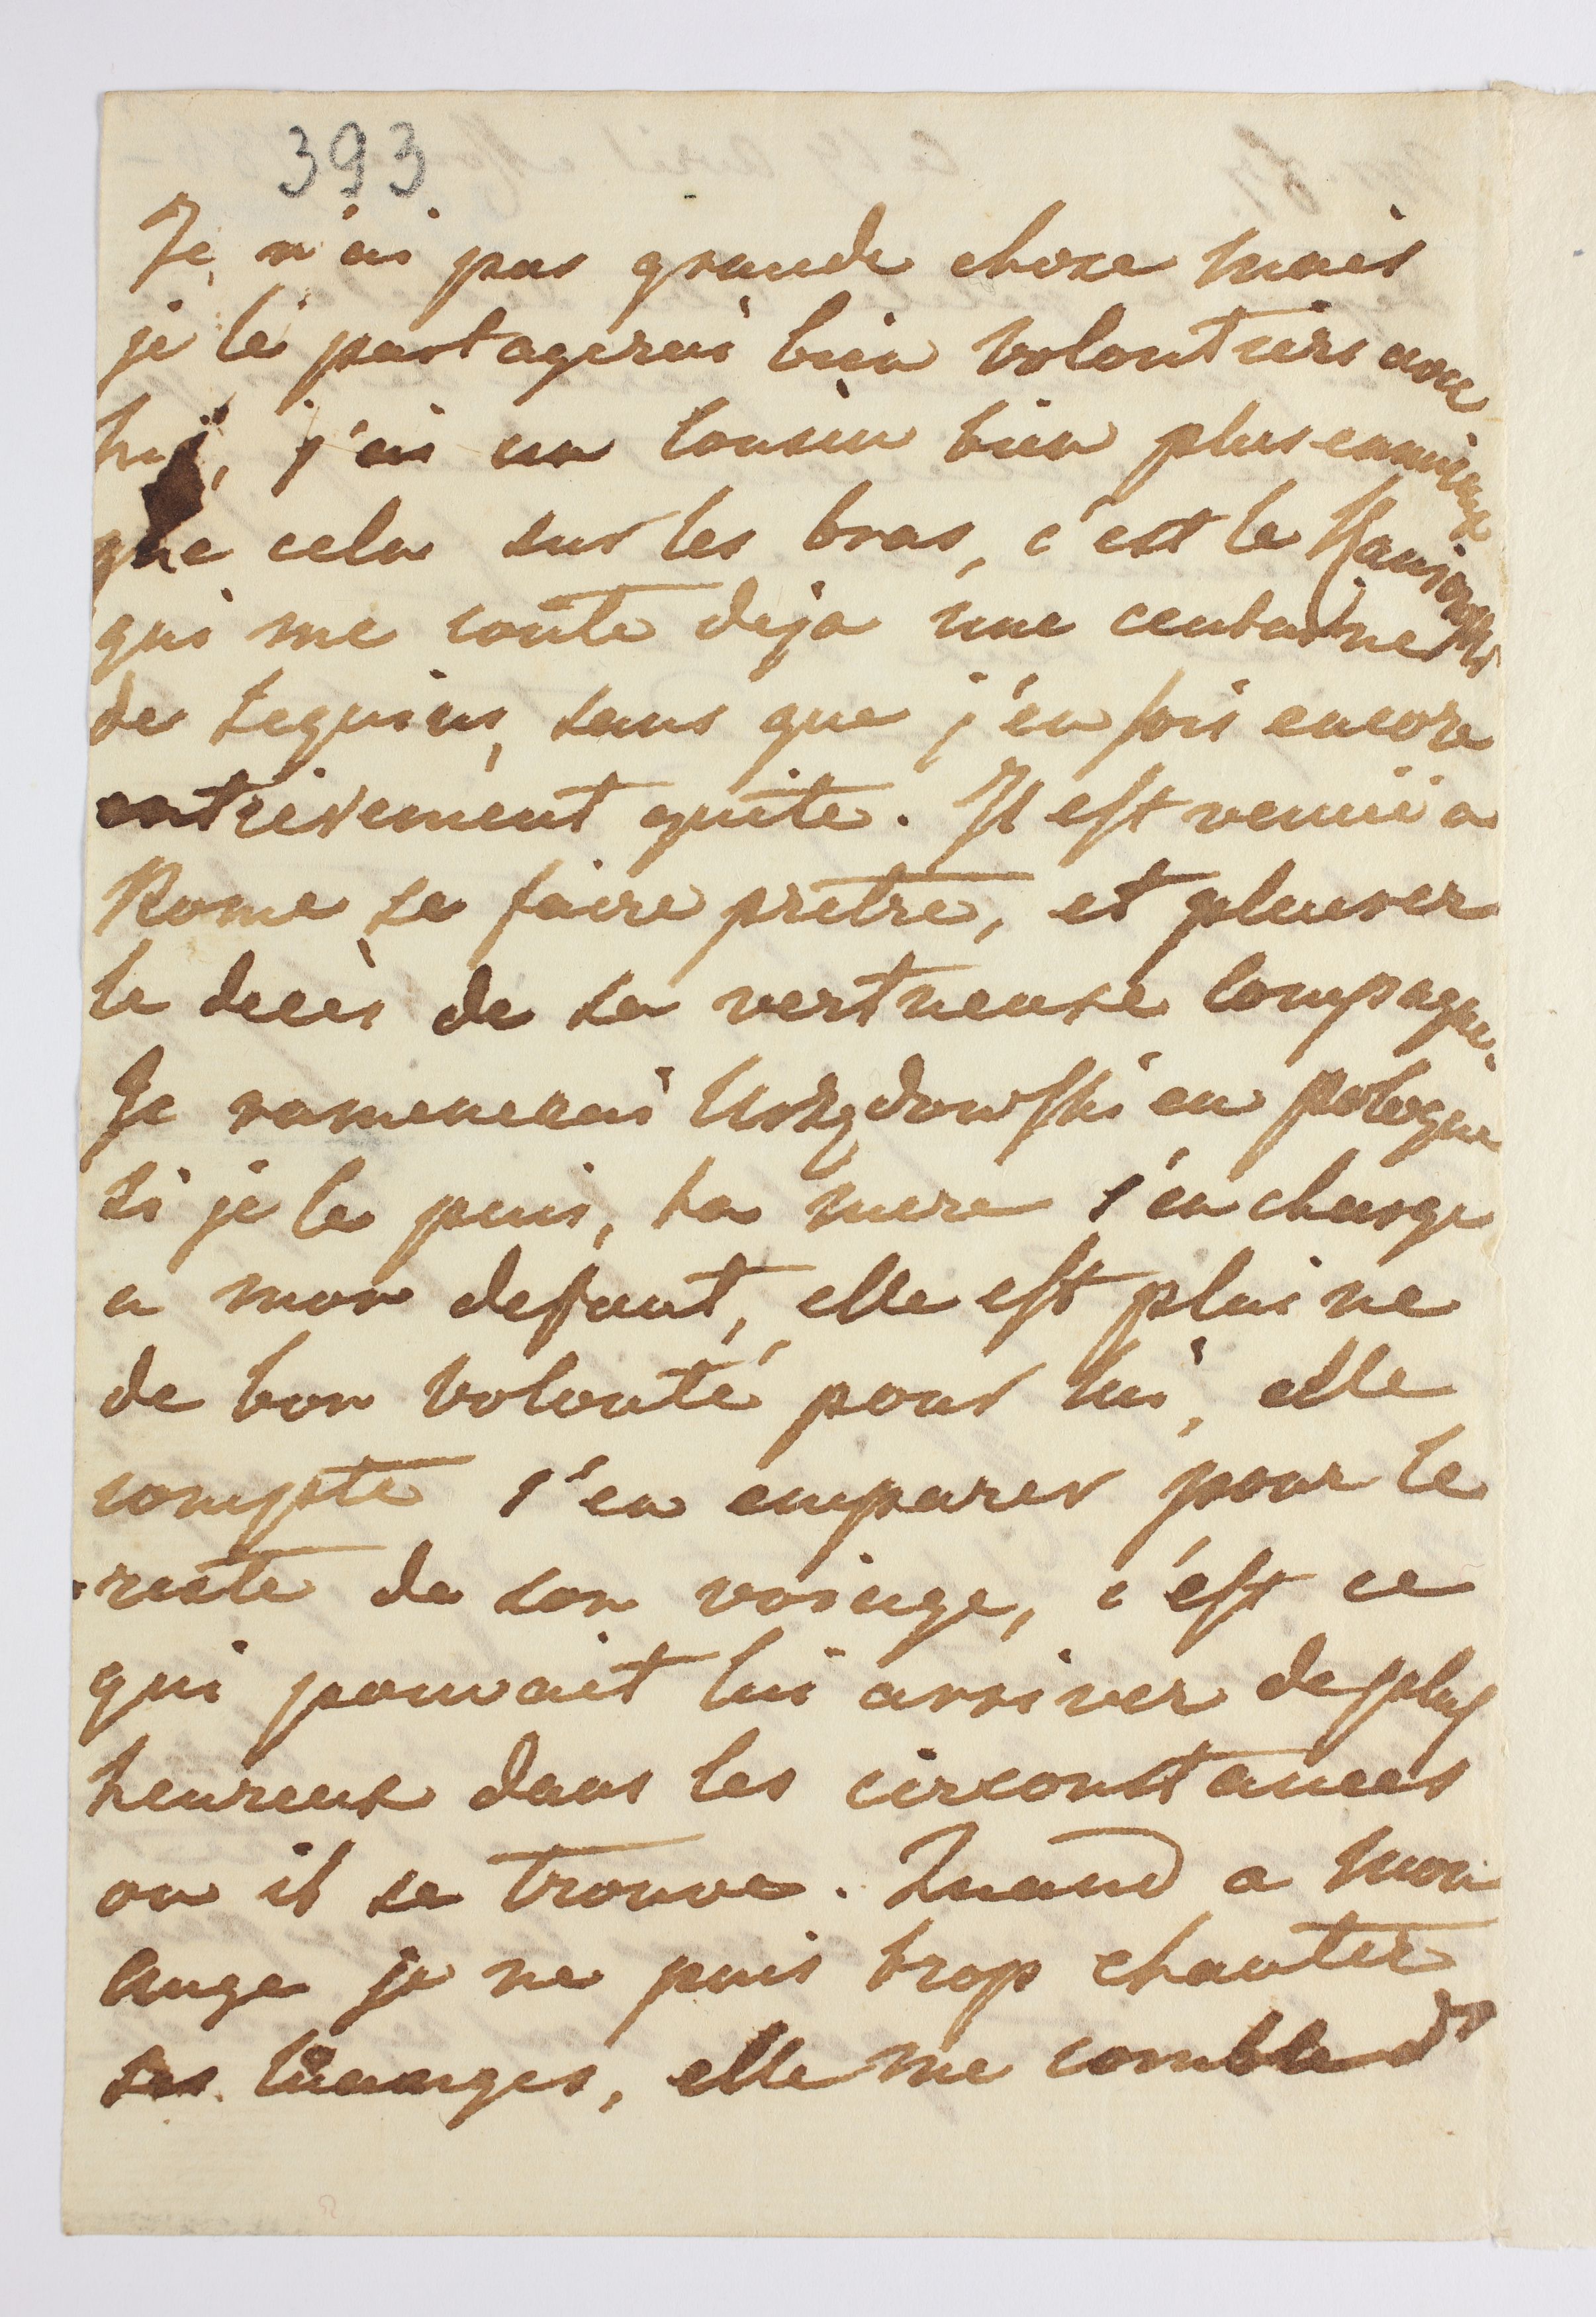 393.
Je n'ai pas grande chose mais
je le partagerai bien volontiers avec
lui, j'ai un cousin bien plus ennuieux
que cela sur les bras, c'est le
qui me coute deja une centaine
de sequins, sans que j'en sois encore
entierement quite. Il est venu a
Rome se faire pretre, et pleurer
le decès de sa vertueuse compagne.
Je ramenerai Urzdowski en pologne
si je le puis, ta mere s'en charge
a mon defaut, elle est plaine
de bon volonté pour lui, elle
compte s'en emparer pour le
reste de son voiage, c'est ce
qui pouvait lui arriver de plus
heureux dans les circonstances
ou il se trouve. Quand a mon
Ange je ne puis trop chanter
ses louanges, elle me comble de